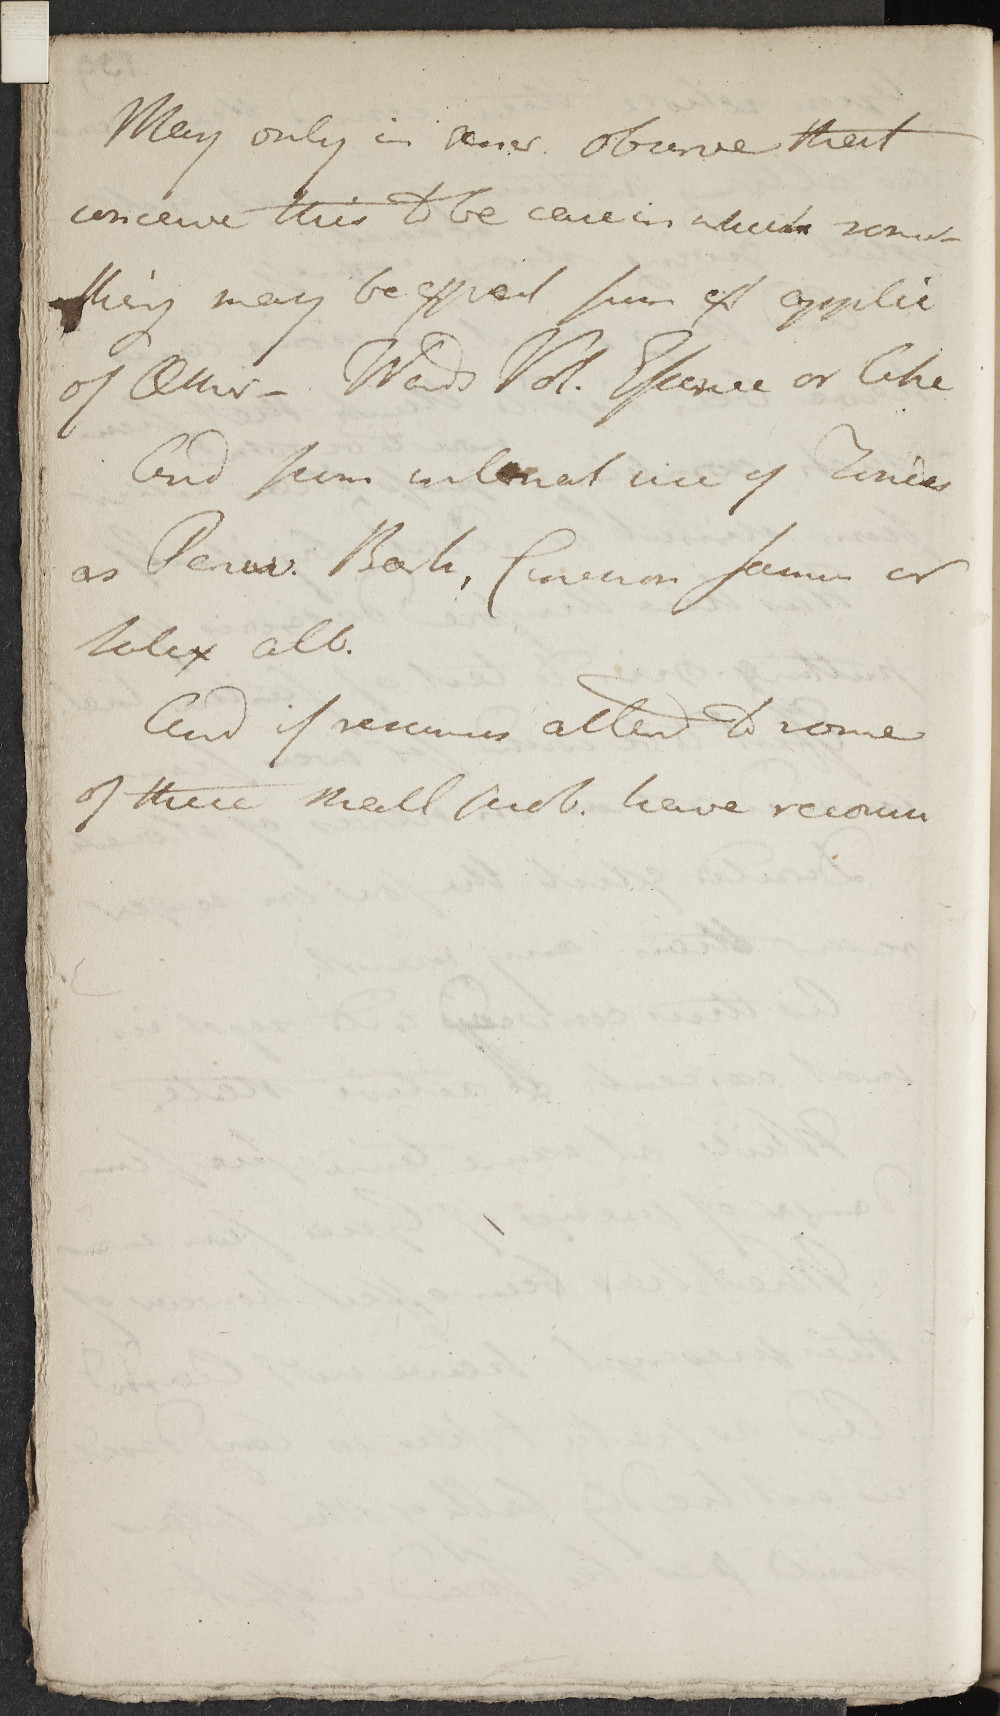 May only in gener. observe that
conceive this to be case in which some-
thing may be effect from ext applic
of Æther - Wards Vol. Essence or like
And from internal use of Tonics
as Peruv. Bark, Limenon or
Salix alb.
And if resumes attend to some
of these shall prob. have recomm